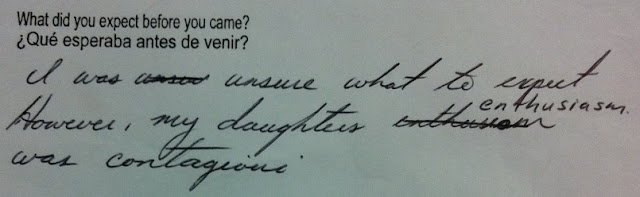 What did you expect before you came?
¿Qué esperaba antes de venir?
I was unsure what to expect
However, my daughters enthusiasm.
was contagious